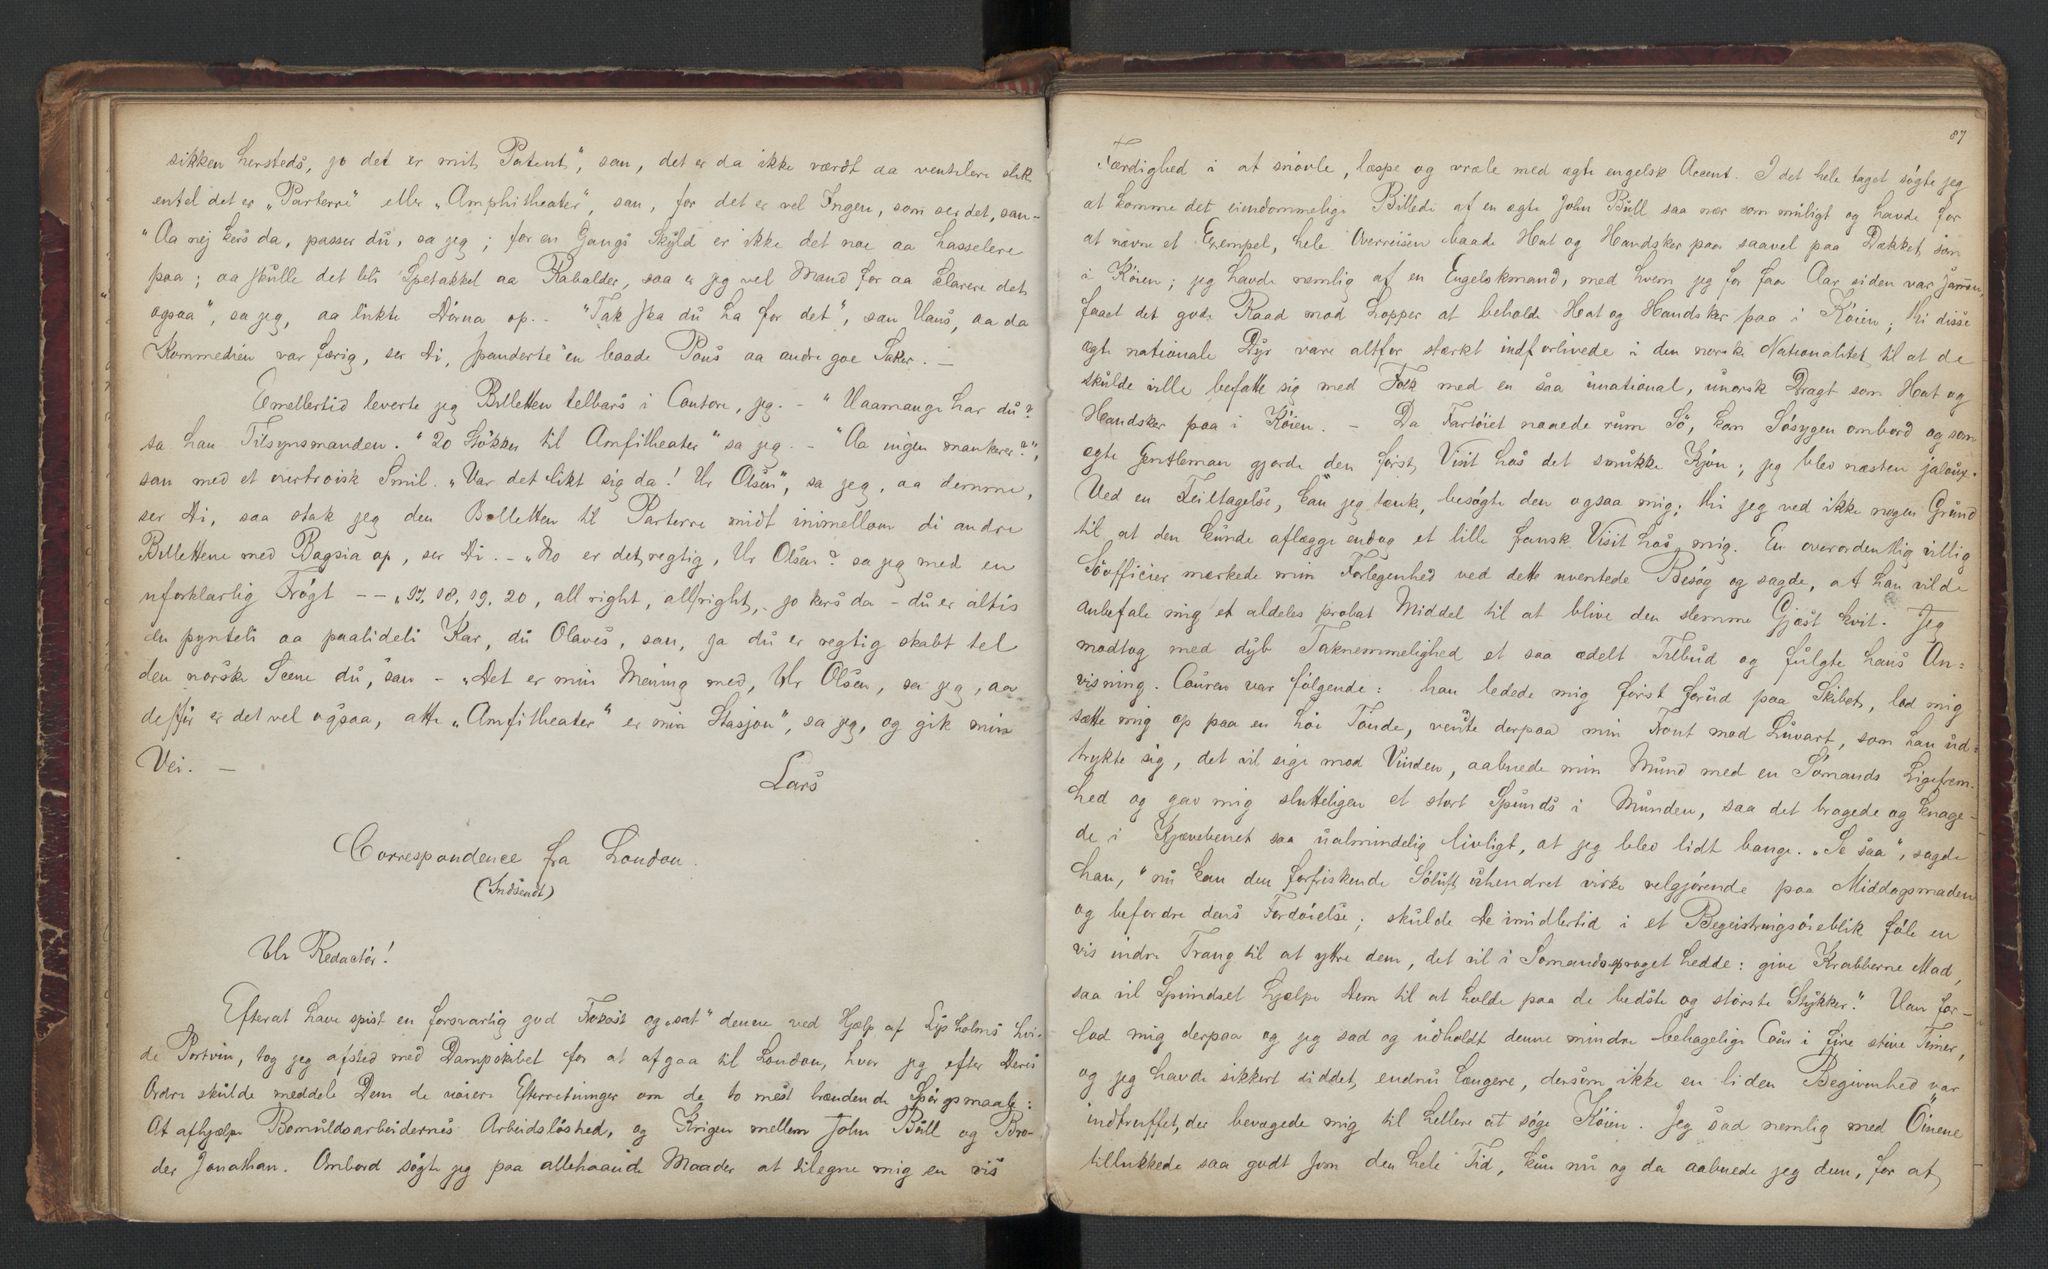 sikken hersteds, jo det er mit Patent", san, det er da ikke værdt aa ventilere slik
entel det er „Parterre" eller „Amphitheater", san, for det er vel Ingen, som ser det, san –
"Aa nej kors da, passer du, sa jeg; for en Gangs Skyld er ikke det noe aa hasselere
paa; aa skulle det bli Spetakkel aa Rabalder, saa er jeg vel Mand for aa klarere det
ogsaa", sa jeg, aa lukte Dörna op. – "Tak ska du ha for det", san Hans, aa da
Kommedien var færig, ser Di, spanderte 'en baade Pons aa andre goe Saker. –
Emellertid leverte jeg Billetten telbars i Contore, jeg. – "Haamange har du?"
sa han Tilsynsmanden. "20 Stökker til Amfitheater" sa jeg. – "Aa ingen mankerer?",
san med et overtroisk Smil. „Var det likt sig da! Hr Olsen", sa jeg, aa dermme,
ser Di, saa stak jeg den Billetten til Parterre midt inimellom di andre
Billettene med Bagsia op, ser Di. – „No er det regtig, Hr Olsen? sa jeg med en
uforklarlig Frögt – – „17, 18, 19, 20, all right, all right, – jo kors da – du er altis
en pynteli aa paalideli Kar, du Olavus, san, ja du er regtig skabt tel
den norske Scene du, san – „Det er min Mening med, Hr Olsen, sa jeg, aa
deffür er det vel ogsaa, atte „Amfitheater" er min Stasjon", sa jeg, og gik min
Vei. –
Lars
Correspondence fra London.
(Indsendt)
Hr Redactör!
Efterat have spist en forsvarlig god Frokost og „sat" denne ved Hjælp af Lysholms hvi-
de Portvin, tog jeg afsted med Dampskibet for at afgaa til London, hvor jeg efter Deres
Ordre skulde meddele Dem de nöiere Efterretninger om de to mest brændende Spörgsmaale:
At afhjælpe Bomuldsarbeidernes Arbeidslöshed, og Krigen mellem John Bull og Bro-
der Jonathan. Ombord sögte jeg paa allehaande Maader at tilegne mig en vis
87
Færdighed i at snövle, læspe og vræle med ægte engelsk Accent. I det hele taget sögte jeg
at komme det eiendommelige Billede af en ægte John Bull saa nær som muligt og havde for
at nævne et Exempel, hele Overreisen baade Hat og Handsker paa saavel paa Dækket som
i Köien; jeg havde nemlig af en Engelskmand, med hvem jeg for faa Aar siden var sammen,
faaet det gode Raad mod Lopper at beholde Hat og Handsker paa i Köien; thi disse
ægte nationale Dyr vare altfor stærkt indforlivede i den norske Nationalitet til at de
skulde ville befatte sig med Folk med en saa unational, unorsk Dragt som Hat og
Handsker paa i Köien. – Da Fartöiet naaede rum Sö, kom Sösygen ombord og som
ægte Gentleman gjorde den först Visit hos det smukke Kjön; jeg blev næsten jaloux.
Ved en Feiltagelse, kan jeg tænke, besögte den ogsaa mig; thi jeg ved ikke nogen Grund
til at den kunde aflægge endog et lille fransk Visit hos mig. En overordentlig villig
Söofficier mærkede min Forlegenhed ved dette uventede Besög og sagde, at han vilde
anbefale mig et aldeles probat Middel til at blive den slemme Gjæst kvit. Jeg
modtog med dyb Taknemmelighed et saa ædelt Tilbud og fulgte hans An=
visning. Couren var fölgende: han ledede mig först forud paa Skibet, lod mig
sætte mig op paa en höi Tönde, vendte derpaa min Front mod Luvart, som han ud=
trykte sig, det vil sige mod Vinden, aabnede min Mund med en Sömands Ligefrem-
hed og gav mig slutteligen et stort Spunds i Munden, saa det bragede og knage-
de i Kjævebenet saa ualmindelig livligt, at jeg blev lidt bange. „Se saa", sagde
han, "nu kan den forfriskende Söluft uhendret virke velgjörende paa Middagsmaden
og befordre dens Fordöielse; skulde De imidlertid i et Begeistringsöieblik föle en
vis indre Trang til at yttre dem, det vil i Sömandssproget hedde: give Krabberne Mad,
saa vil Spundset hjælpe Dem til at holde paa de bedste og störste Stykker." Han for-
lod mig derpaa og jeg sad og udholdt denne mindre behagelige Cour i fire stive Timer,
og jeg havde sikkert siddet endnu længere, dersom ikke en liden Begivenhed var
indtruffet, der bevægede mig til hellere at söge Köien. Jeg sad nemlig med Öinene
tillukkede saa godt som den hele Tid, kun nu og da aabnede jeg dem, for at